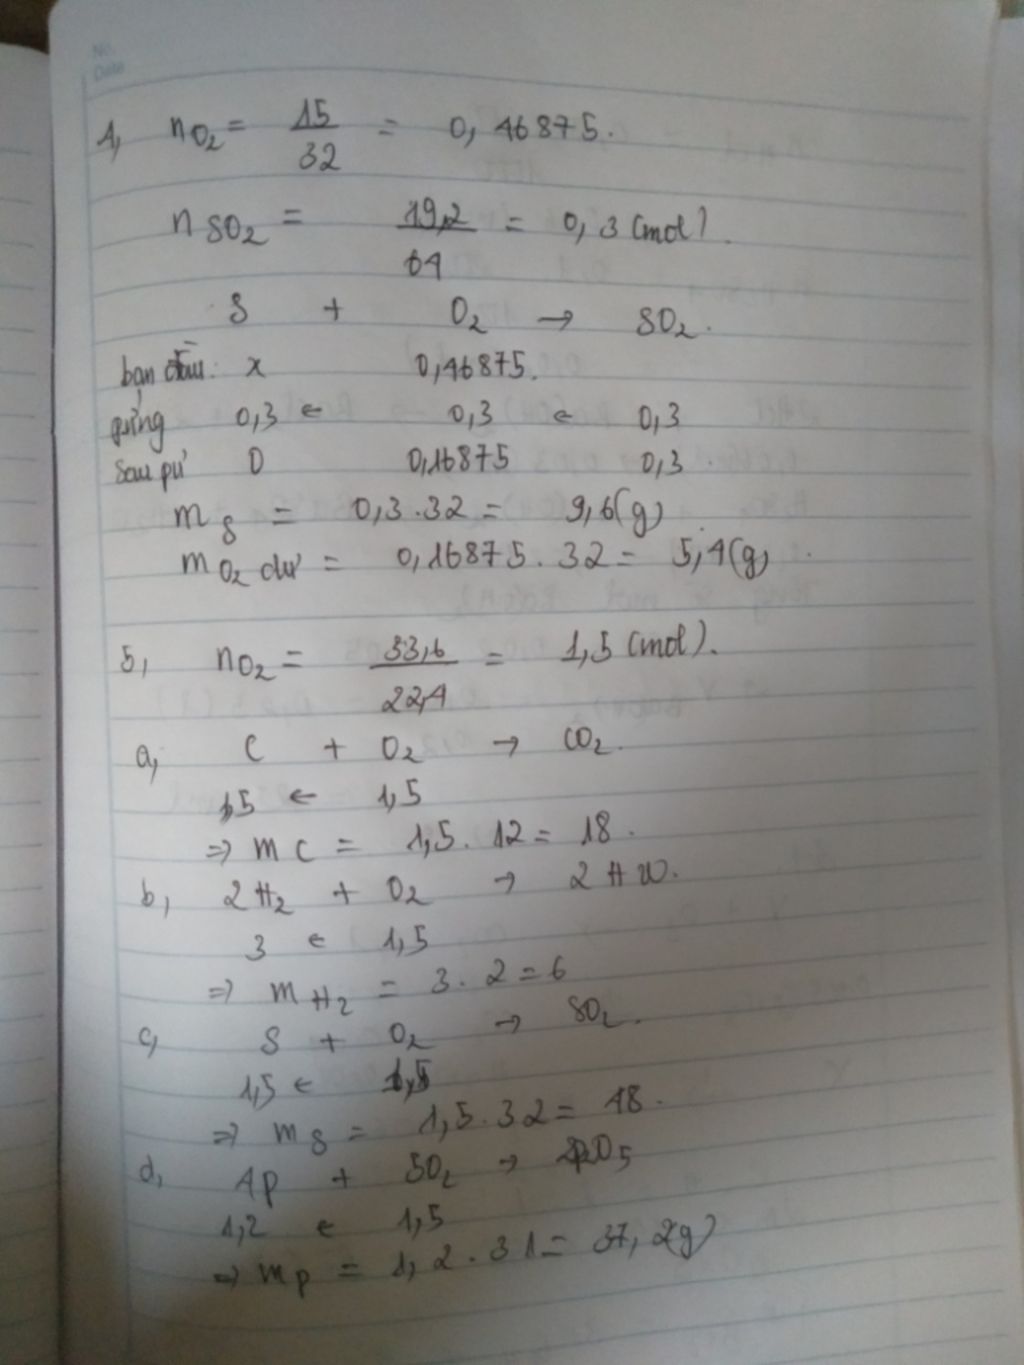 No.
Date
4, nO2 = 15/32 = 0,46875.
nSO2 = 19,2/64 = 0,3 (mol).
S + O2 → SO2.
ban đầu: x 0,46875.
pứng 0,3 ← 0,3 ← 0,3
Sau pứ 0 0,16875 0,3.
mS = 0,3.32 = 9,6(g)
mO2 dư = 0,16875.32 = 5,4(g).
5, nO2 = 33,6/22,4 = 1,5 (mol).
a, C + O2 → CO2.
1,5 ← 1,5
⇒ mC = 1,5.12 = 18.
b, 2H2 + O2 → 2H2O.
3 ← 1,5
⇒ mH2 = 3.2 = 6
c, S + O2 → SO2.
1,5 ← 1,5
⇒ mS = 1,5.32 = 48.
d, 4P + 5O2 → 2P2O5
1,2 ← 1,5
⇒ mP = 1,2.31 = 37,2(g)